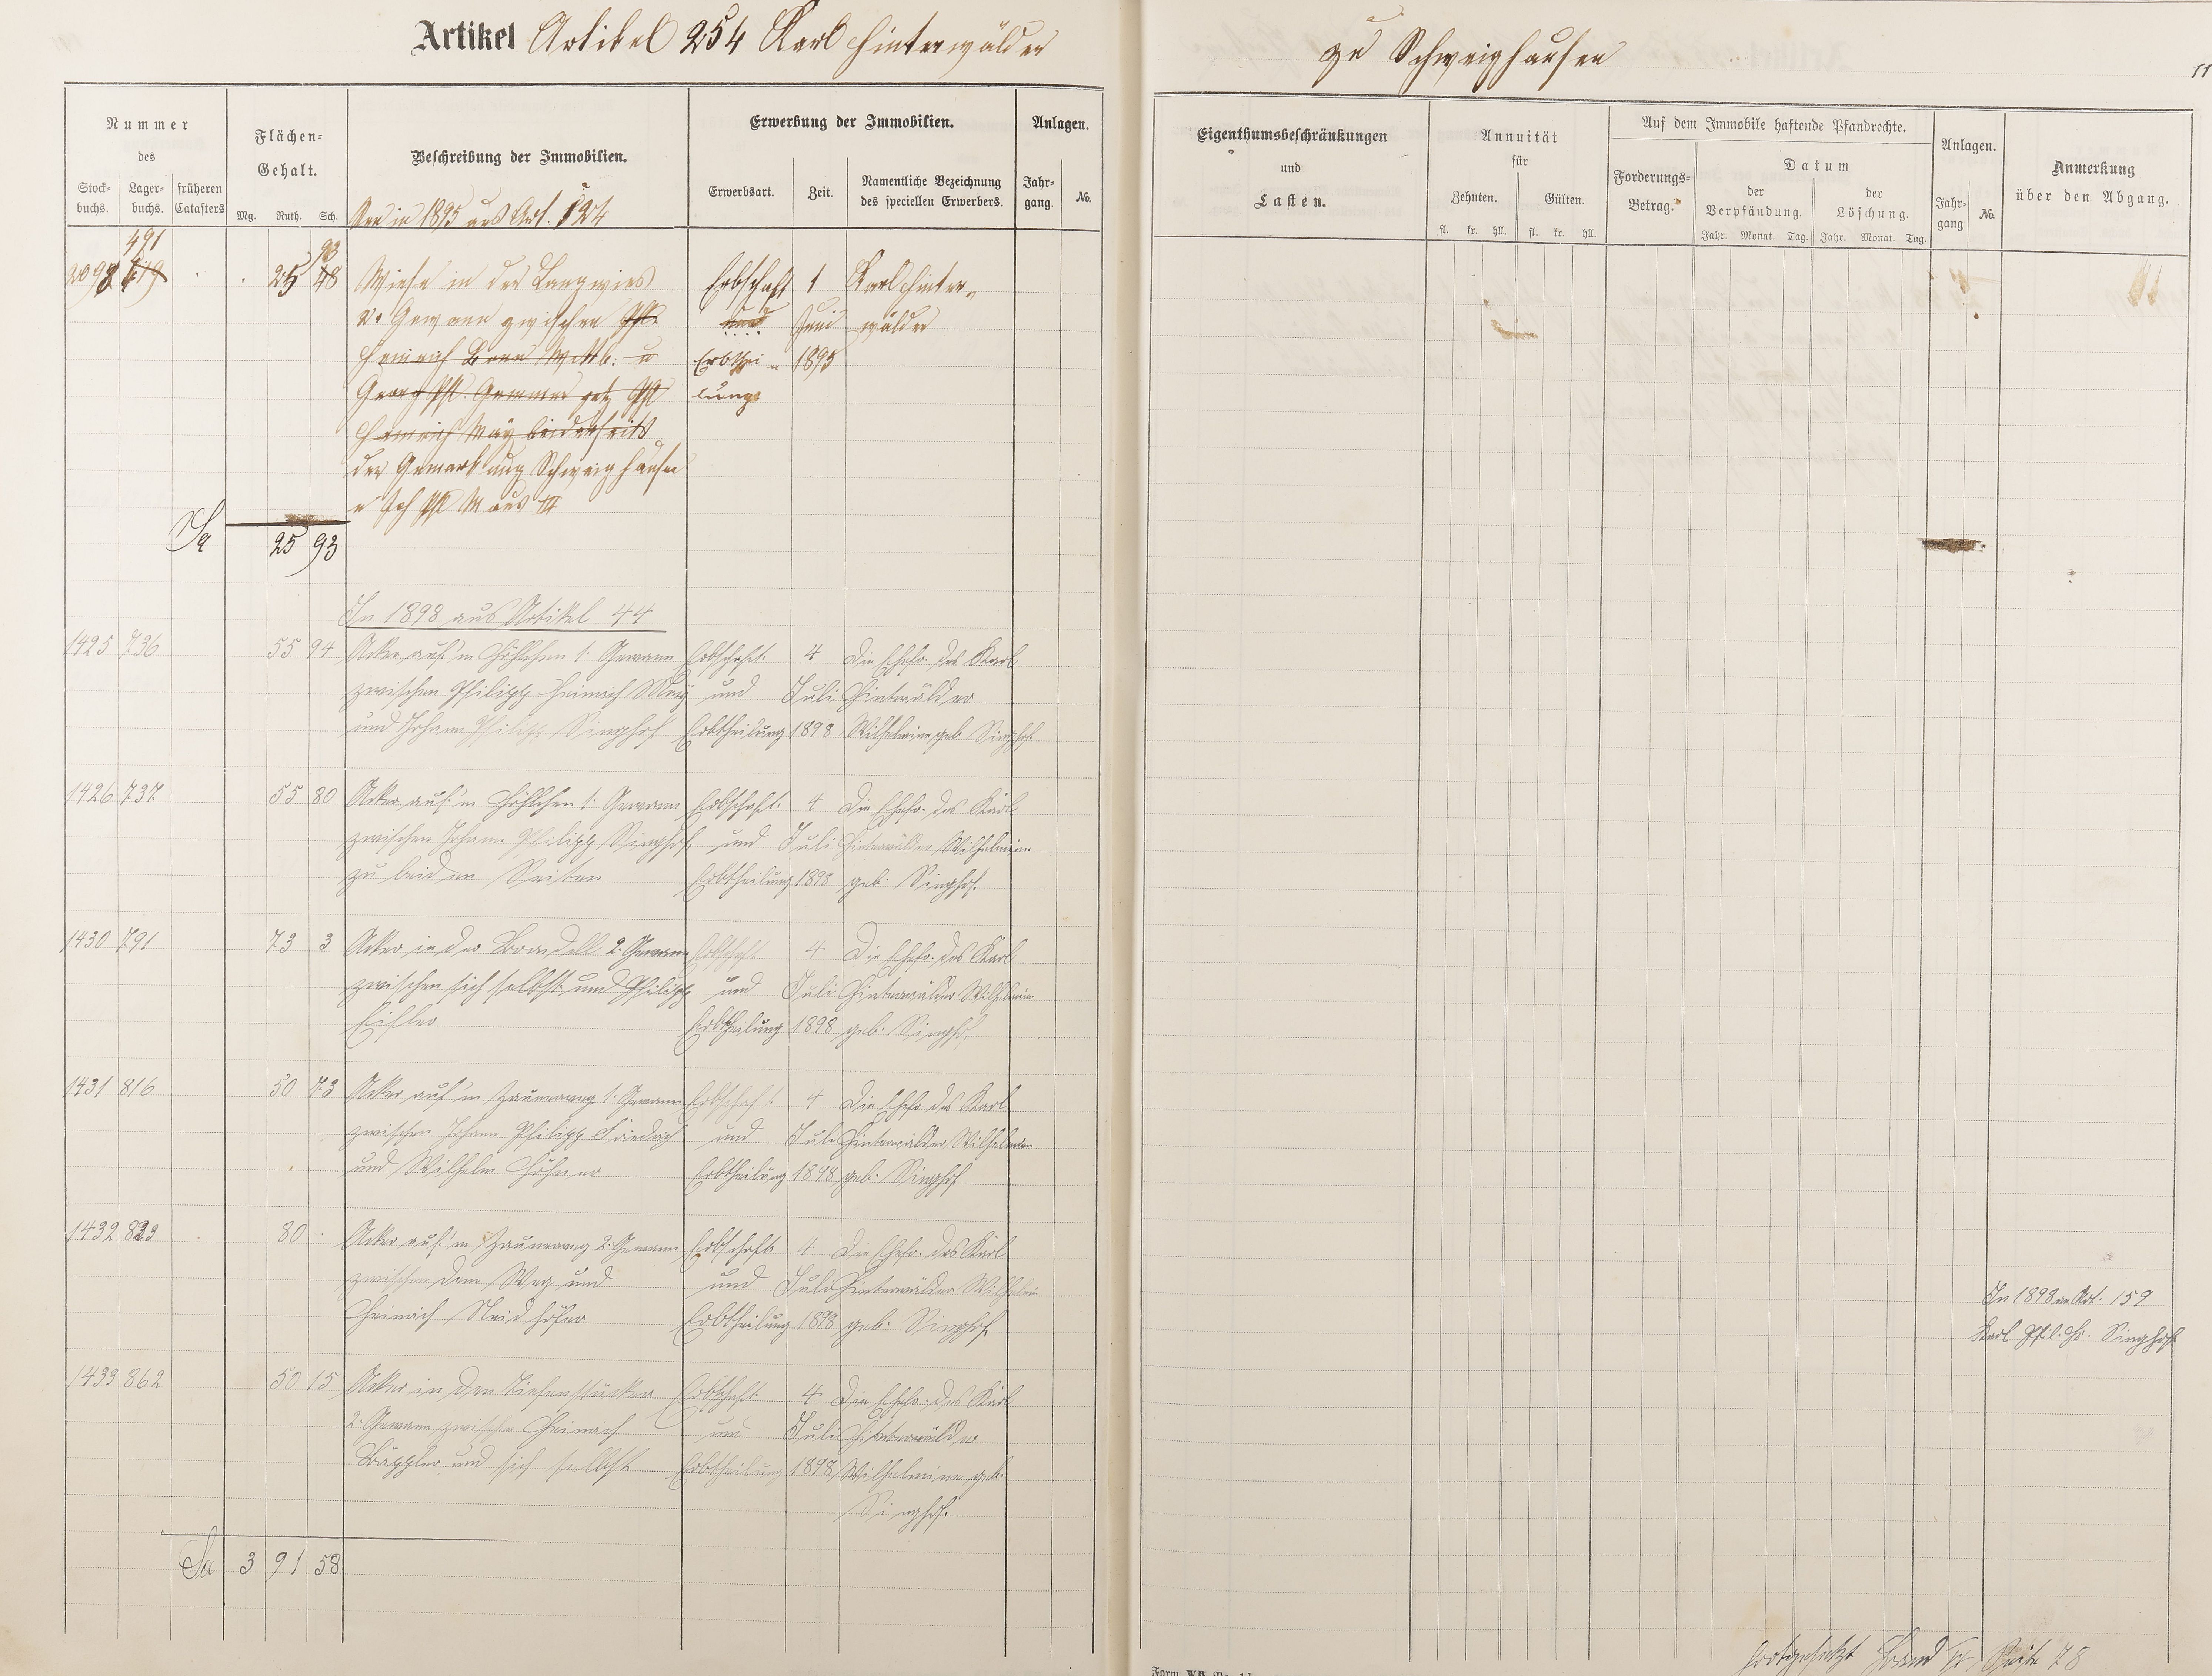 Artikel Artikel 254 Karl Hinterwälder
zu Schweighausen
11
Nummer
des
Stock-
buchs.
Lager-
buchs.
früheren
Catasters
Flächen-
Gehalt.
Mg. Ruth. Sch.
Beschreibung der Immobilien.
Erwerbung der Immobilien.
Erwerbsart.
Zeit.
Namentliche Bezeichnung
des speciellen Erwerbers.
Anlagen.
Jahr-
gang.
No.
Eigenthumsbeschränkungen
und
Lasten.
Annuität
für
Zehnten.
Gülten.
fl. kr. hll. fl. kr. hll.
Auf dem Immobile haftende Pfandrechte.
Forderungs-
Betrag.
Datum
der
Verpfändung.
der
Löschung.
Jahr. Monat. Tag. Jahr. Monat. Tag.
Anlagen.
Jahr-
gang
No.
Anmerkung
über den Abgang.
in 1895 aus Art. 124
491 93
25 48 Wiese in der Langwies Erbschaft 1 Karl Hinter-
2. Gewann zwischen Phil. und Juni wälder
Heinrich Wittb. u Erbthei- 1895
Georg Phil. Gemmer jetz Phil lung
Heinrich May beiderseits
der Gemarkung Schweighausen
Sa 25 93
In 1898 aus Artikel 44
1425 736 55 94 Acker auf'm Höhlchen 1. Gewann Erbschaft 4 Die Ehefr. des Karl
zwischen Philipp Heinrich May und Juli Hinterwälder
und Johann Philipp Singhof Erbtheilung 1898 Wilhelmine geb Singhof
1426 737 55 80 Acker auf'm Höhlchen 1. Gewann Erbschaft 4 Die Ehefr. des Karl
zwischen Johann Philipp Singhof und Juli Hinterwälder Wilhelmine
zu beiden Seiten Erbtheilung 1898 geb. Singhof.
1430 791 73 3 Acker in der 2. Gewann Erbschaft 4 Die Ehefr. des Karl
zwischen sich selbst und Philipp und Juli Hinterwälder Wilhelmine
Eisler Erbtheilung 1898 geb. Singhof
1431 816 50 73 Acker auf'm 1. Gewann Erbschaft 4 Die Ehefr des Karl
zwischen Johann Philipp Friedrich und Juli Hinterwälder Wilhelmine
und Wilhelm Höhner Erbtheilung 1898 geb. Singhof
1432 823 80 Acker auf'm 2. Gewann Erbschaft 4 Die Ehefr. des Karl
zwischen dem Weg und und Juli Hinterwälder Wilhelmine
Heinrich Neidhöfer Erbtheilung 1898 geb. Singhof.
In 1898 an Art. 159
Karl Phil. Hr. Singhof
1433 862 50 15 Acker in den Tiefenstücker Erbschaft 4 Die Ehefr. des Karl
2. Gewann zwischen Heinrich und Juli Hinterwälder
Bäppler und sich selbst Erbtheilung 1898 Wilhelmine geb.
Singhof.
Sa 3 91 58
fortgesetzt Band Seite 78